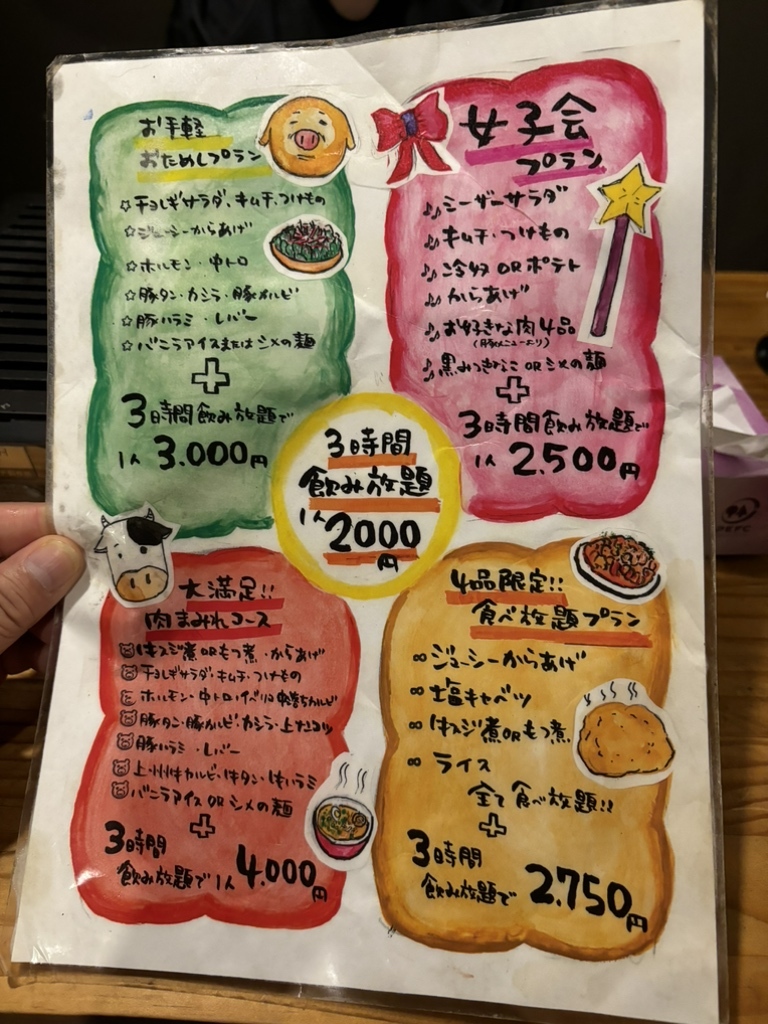 お手軽
おためしプラン
☆チョレギサラダ、キムチ、つけもの
☆ジューシーからあげ
☆ホルモン・中トロ
☆豚タン・カシラ・豚カルビ
☆豚ハラミ・レバー
☆バニラアイスまたはシメの麺
+
3時間飲み放題で
1人 3.000円
女子会
プラン
シーザーサラダ
キムチ・つけもの
冷奴 OR ポテト
からあげ
お好きな肉4品
(豚メニューより)
黒みつきなこ OR シメの麺
+
3時間飲み放題で
1人 2.500円
3時間
飲み放題
1人
2000
円
大満足!!
肉まみれコース
牛スジ煮ORもつ煮・からあげ
チョレギサラダ・キムチ・つけもの
ホルモン・中トロ・イベリコ中落ちカルビ
豚タン・豚カルビ・カシラ・上
豚ハラミ・レバー
上州牛カルビ・牛タン・牛ハラミ
バニラアイス OR シメの麺
+
3時間
飲み放題で1人 4.000円
4品限定!!
食べ放題プラン
ジューシーからあげ
塩キャベツ
牛スジ煮ORもつ煮
ライス
全て食べ放題!!
+
3時間
飲み放題で 2.750円
PEFC